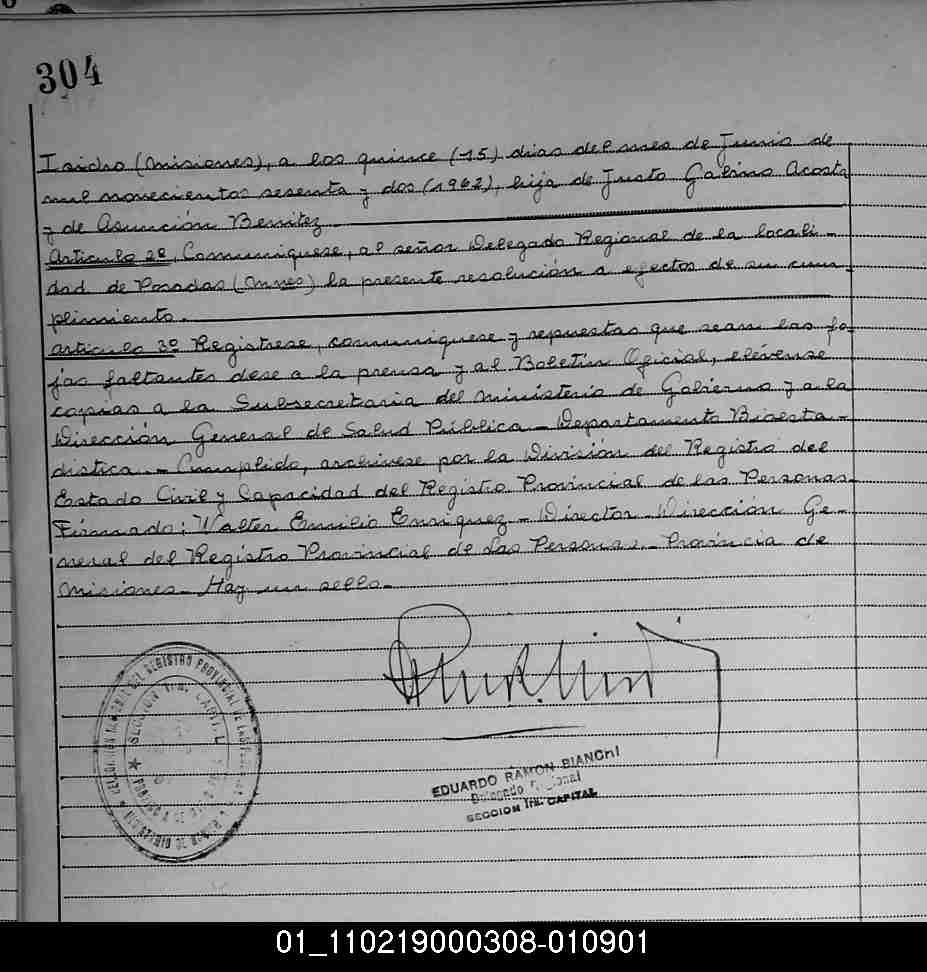 304
Isidro (Misiones), a los quince (15) dias del mes de Junio de
mil novecientos sesenta y dos (1962), hija de Justo Galvino Acosta
y de Asunción Benitez.
Articulo 2º, Comuniquese, al señor Delegado Regional de la locali-
dad de Posadas (Mnes) la presente resolución a efectos de su cum-
plimiento.
Articulo 3º Registrese, comuniquese y repuestas que sean las fo-
jas faltantes dese a la prensa y al Boletin Oficial, elévense
copias a la Subsecretaria del Ministerio de Gobierno y a la
Dirección General de Salud Pública - Departamento Bioesta-
distica. - Cumplido, archivese por la División del Registro del
Estado Civil y Capacidad del Registro Provincial de las Personas
Firmado: Walter Emilio Enriquez - Director - Dirección Ge-
neral del Registro Provincial de Las Personas. - Provincia de
Misiones - Hay un sello -
DEL REGISTRO PROVINCIAL DE LAS
SECCION 1ra. CAPITAL
EDUARDO RAMON BIANCHI
Delegado Regional
SECCION 1ra. CAPITAL
01_110219000308-010901